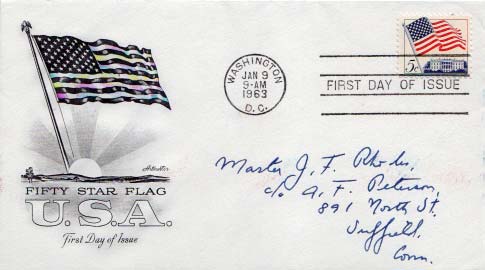 WASHINGTON
JAN 9
9-AM
1963
D.C.
5¢
FIRST DAY OF ISSUE
FIFTY STAR FLAG
U.S.A.
First Day of Issue
Master J. F. Rhodes,
c/o A. F. Peterson,
891 North St.
Suffield.
Conn.